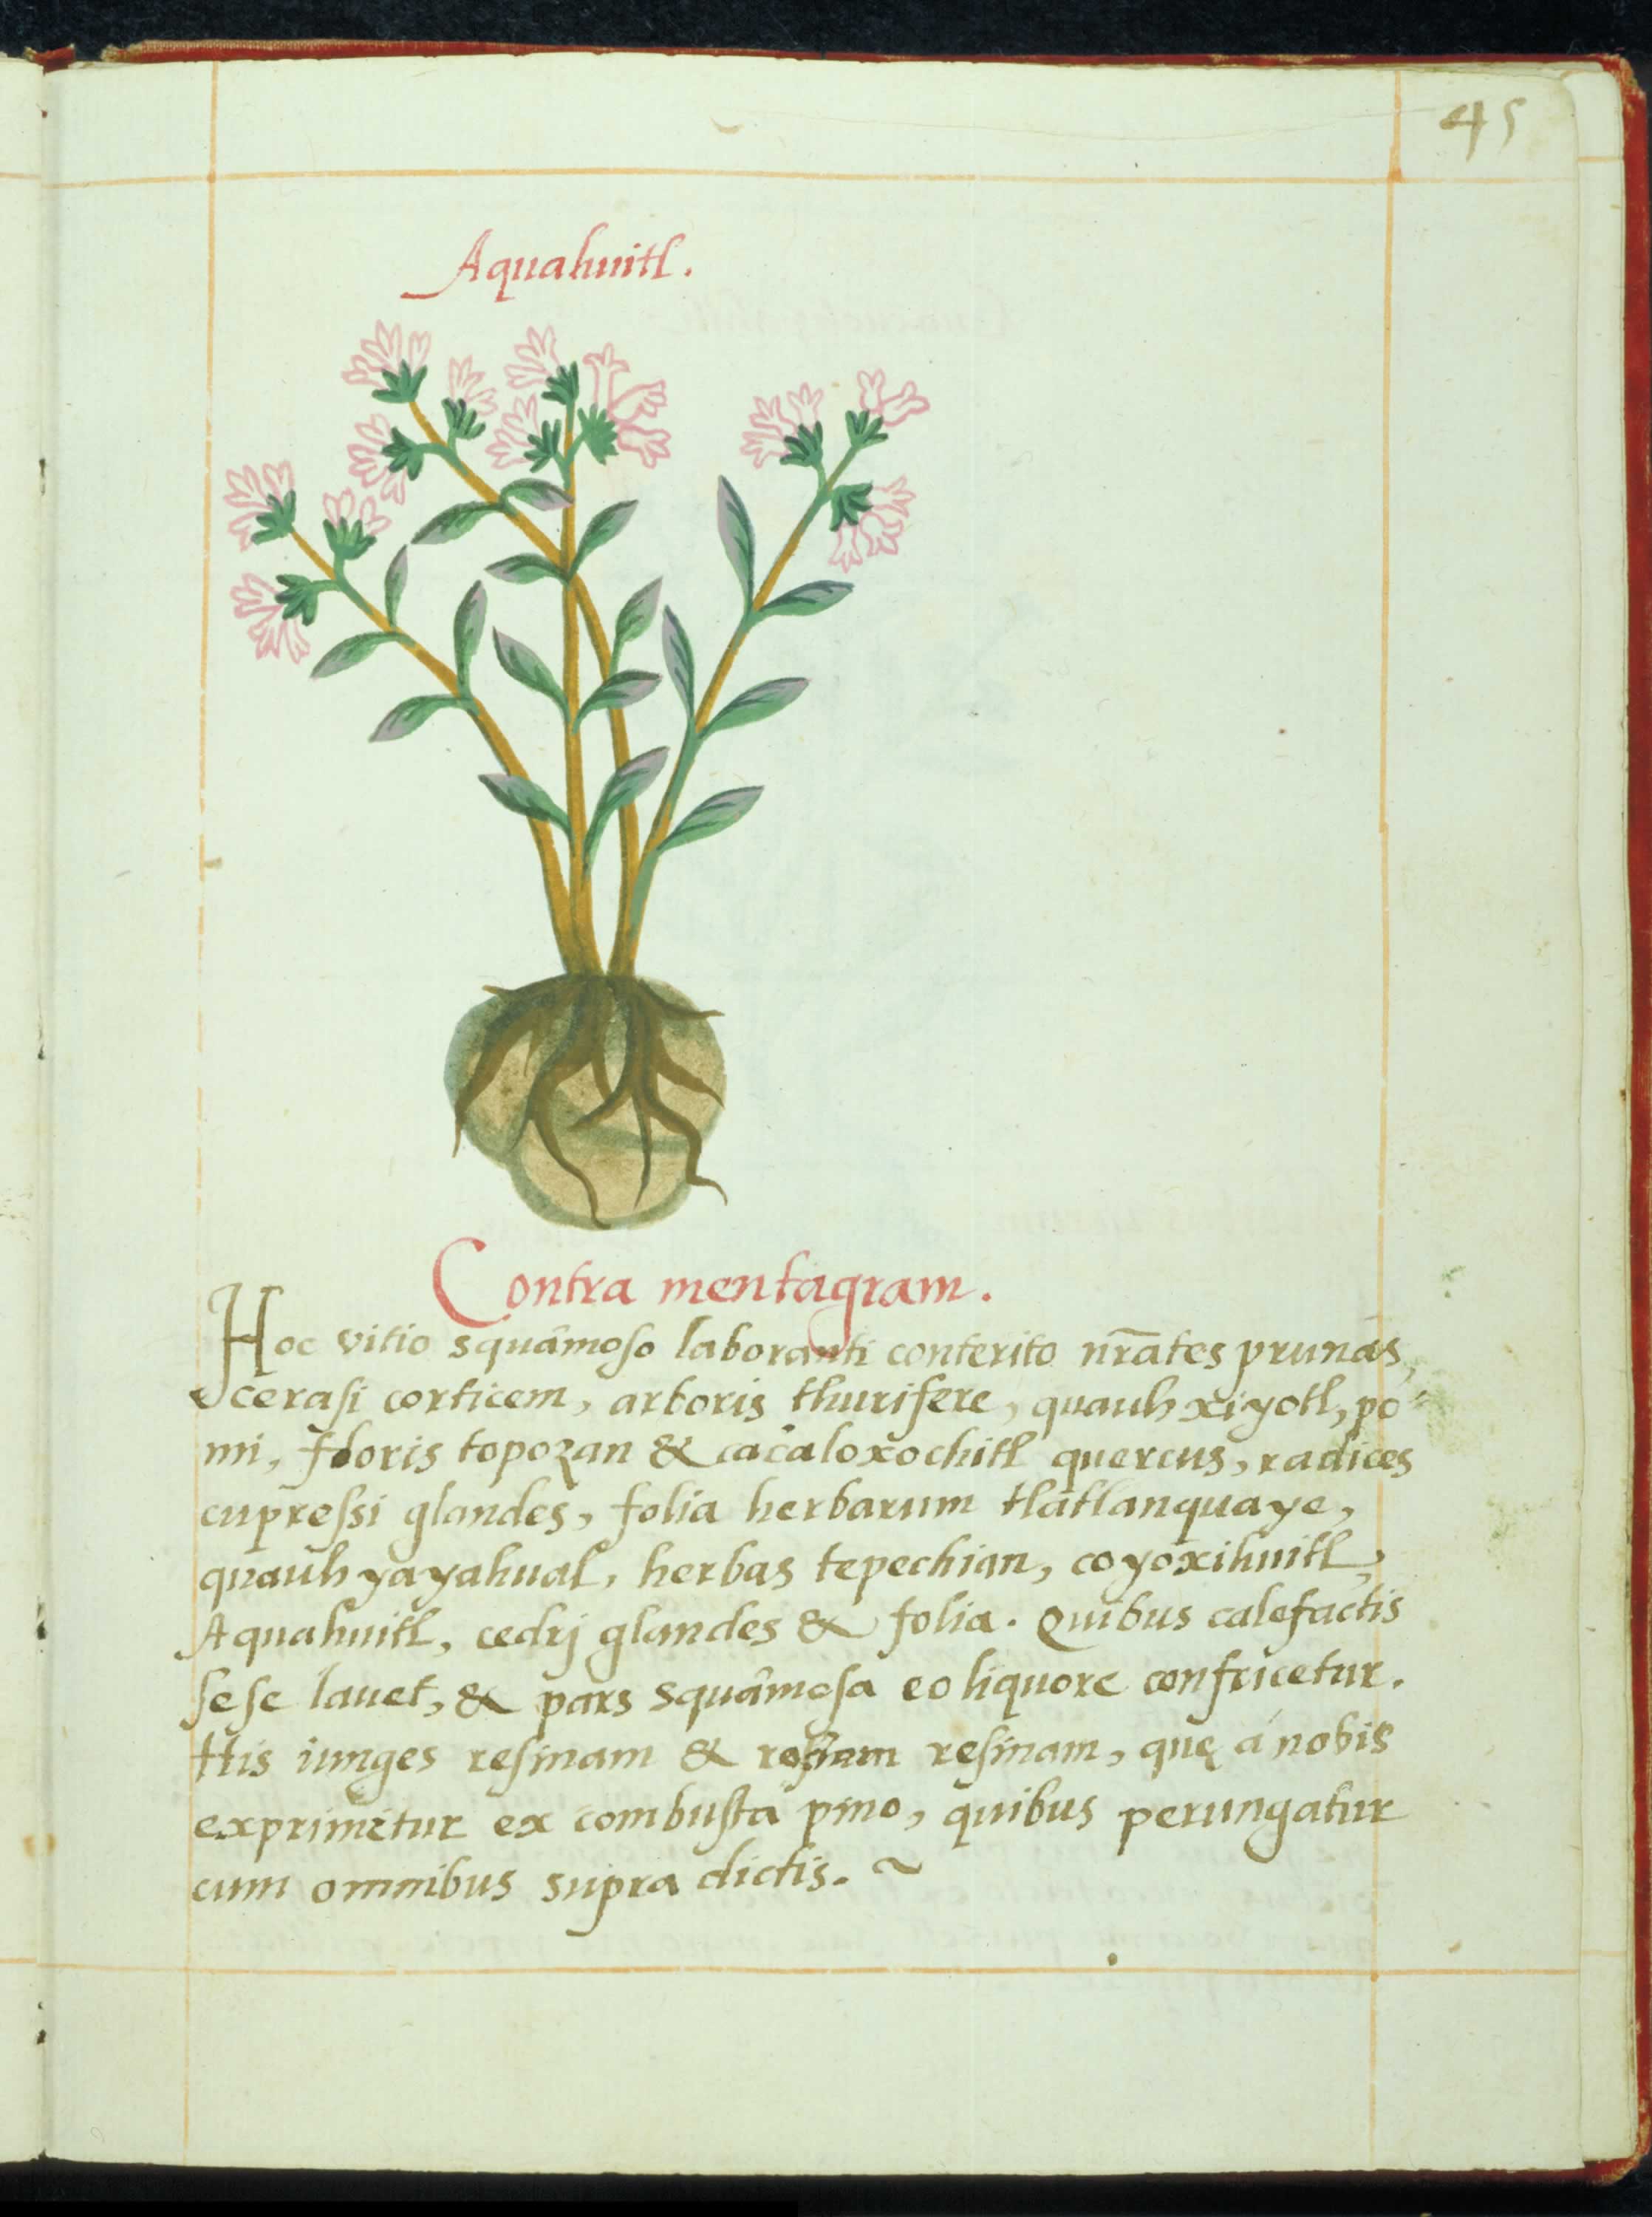 45
Aquahuitl.
Contra mentagram.
Hoc vitio squâmoso laboranti conterito nr̄ates prunas,
cerasi corticem, arboris thurifere, quauh xiyotl, po-
mi, floris topozan & cacaloxochitl quercus, radices
cupressi glandes, folia herbarum tlatlanquaye,
quauh yayahual, herbas tepechian, coyoxihuitl,
Aquahuitl, cedrj glandes & folia. Quibus calefactis
sese lauet, & pars squâmosa eo liquore confricetur.
His iunges resinam & resinam, quę á nobis
exprimitur ex combusta pino, quibus perungatur
cum omnibus supra dictis. ~